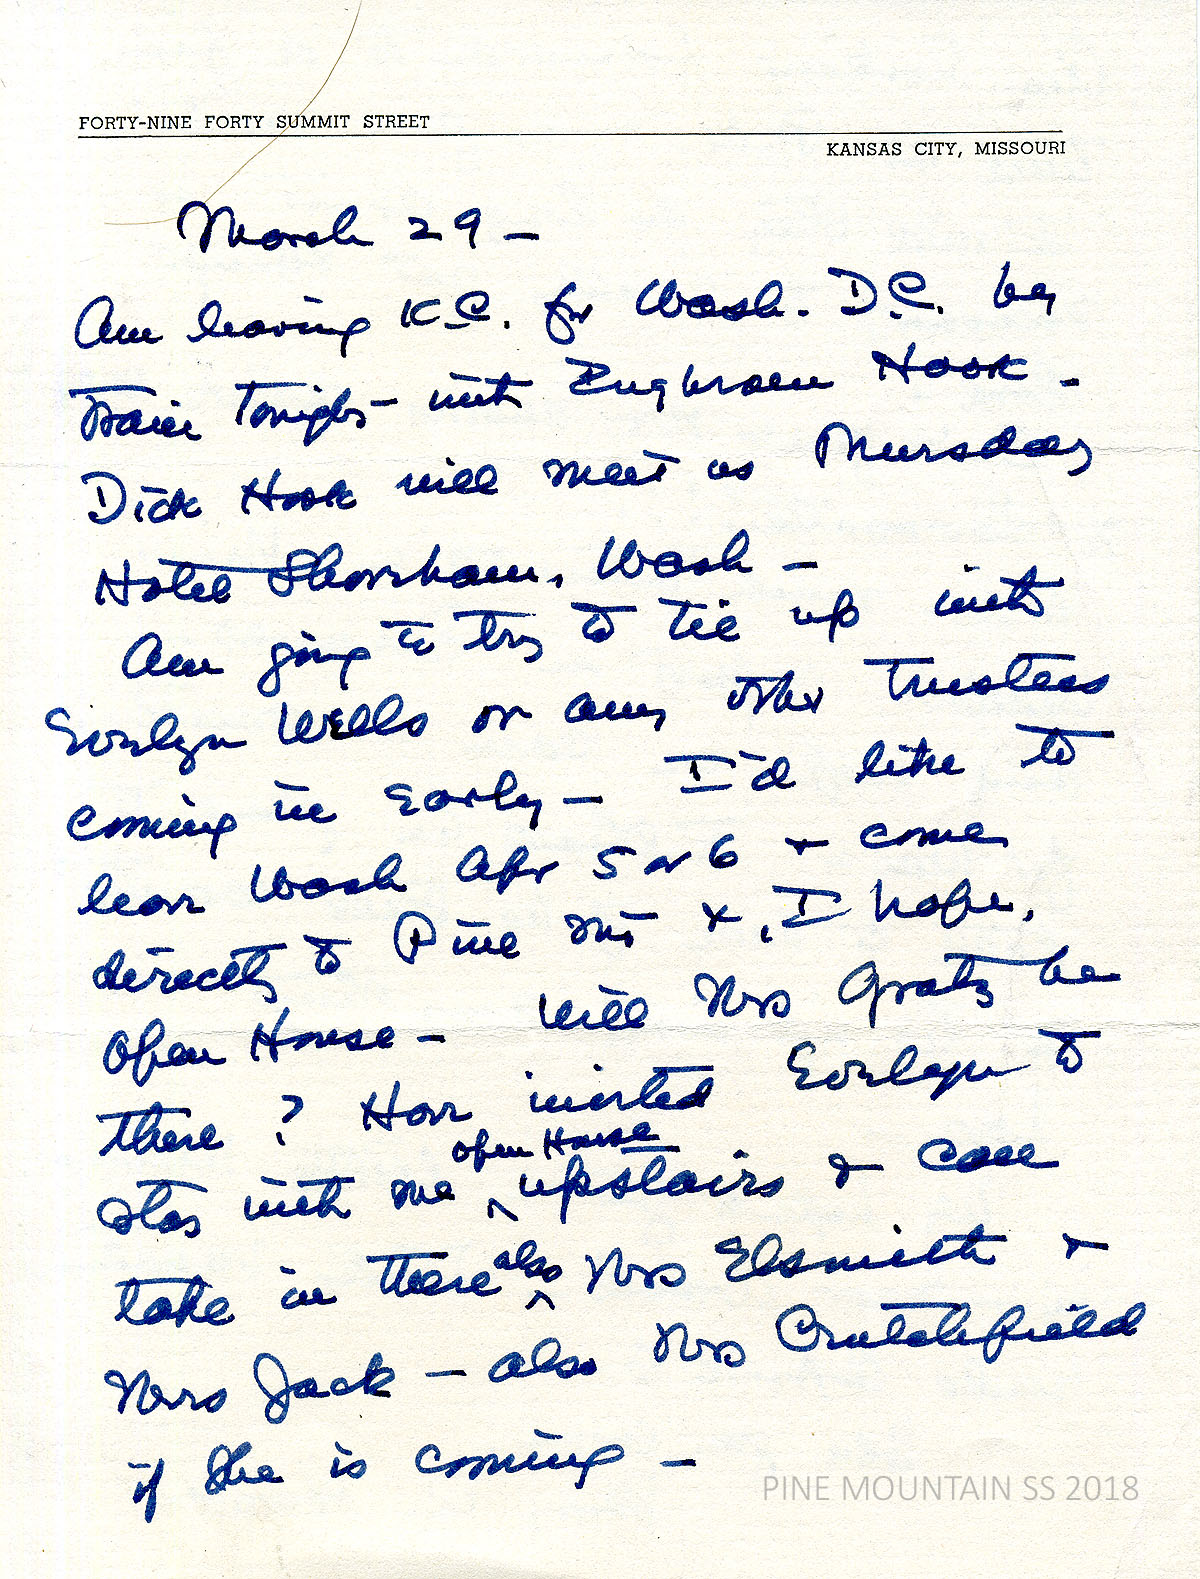 FORTY-NINE FORTY SUMMIT STREET
KANSAS CITY, MISSOURI
March 29 –
Am leaving K.C. for Wash. D.C. by
train tonight – with Hook –
Dick Hook will meet us Thursday
Hotel Shoreham, Wash –
Am going to try to tie up with
Evelyn Wells or any other trustees
coming in early – I'd like to
leave Wash Apr 5 or 6 + come
directly to Pine Mt +, I hope,
Open House – Will Mrs Gratz be
there? Have invited Evelyn to
stay with me ^ open House upstairs & can
take in there ^ also Mrs Elsmith +
Mrs Jack – also Mrs Crutchfield
if she is coming –
PINE MOUNTAIN SS 2018